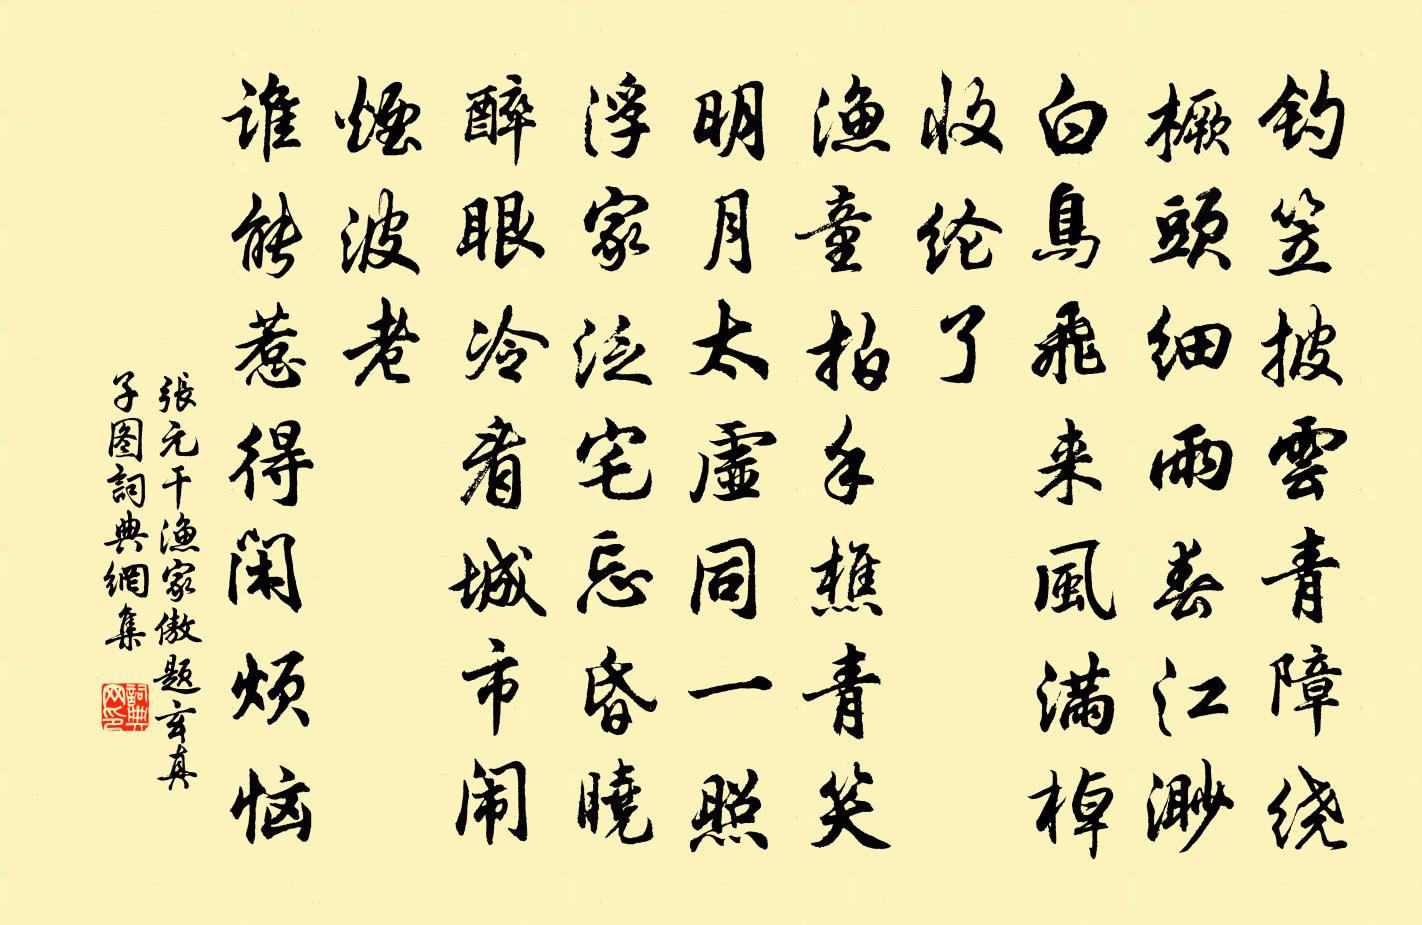 钓笠披雲青障绕
橛頭细雨春江渺
白鳥飛来風滿棹
收纶了
漁童拍手樵青笑
明月太虛同一照
浮家泛宅忘昏曉
醉眼冷看城市闹
煙波老
谁能惹得闲烦恼
張元干漁家傲题玄真
子图詞典網集
詞典
网印